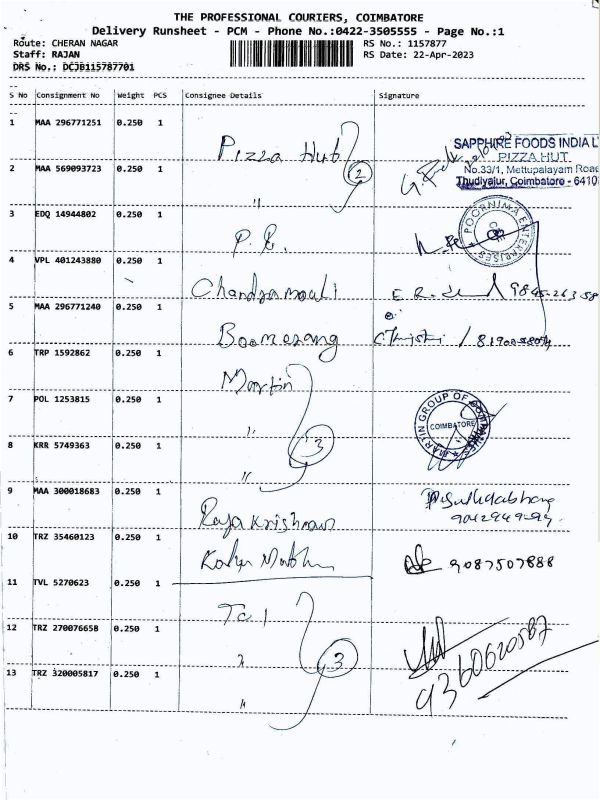 THE PROFESSIONAL COURIERS, COIMBATORE
Delivery Runsheet - PCM - Phone No.:0422-3505555 - Page No.:1
Route: CHERAN NAGAR RS No.: 1157877
Staff: RAJAN RS Date: 22-Apr-2023
DRS No.: DCJB115787701
S No Consignment No Weight PCS Consignee Details Signature
1 MAA 296771251 0.250 1 Pizza Hut
SAPPHIRE FOODS INDIA L
PIZZA HUT
No.33/1, Mettupalayam Road
Thudiyalur, Coimbatore - 6410
2 MAA 569093723 0.250 1 " 2
3 EDQ 14944802 0.250 1 P. E.
POORNIMA ENTERPRISES
CBE
4 VPL 401243880 0.250 1 Chandramouli
5 MAA 296771240 0.250 1 Boomerang
6 TRP 1592862 0.250 1 Martin
7 POL 1253815 0.250 1 "
MARTIN GROUP OF COMPANIES
COIMBATORE
8 KRR 5749363 0.250 1 " 3
9 MAA 300018683 0.250 1 Raja Krishnan
10 TRZ 35460123 0.250 1 9087507888
11 TVL 5270623 0.250 1
12 TRZ 270076658 0.250 1 " 3
9360620587
13 TRZ 320005817 0.250 1 "